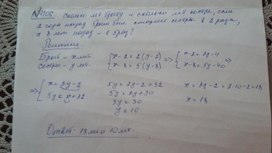 сколько лет брату и сколько лет сестре, если
2 года назад брат был старше сестры в 2 раза,
а 8 лет назад - в 5 раз?
Решение
Брат - x лет
Сестра - y лет
{ x - 2 = 2(y-2)
x - 8 = 5(y-8)
=> { x - 2 = 2y - 4
x - 8 = 5y - 40
=> { x = 2y - 2
5y = x + 32
5y = 2y - 2 + 32
5y = 2y + 30
3y = 30
y = 10
x = 2y - 2 = 2·10 - 2 = 18
x = 18
Ответ: 18 лет и 10 лет